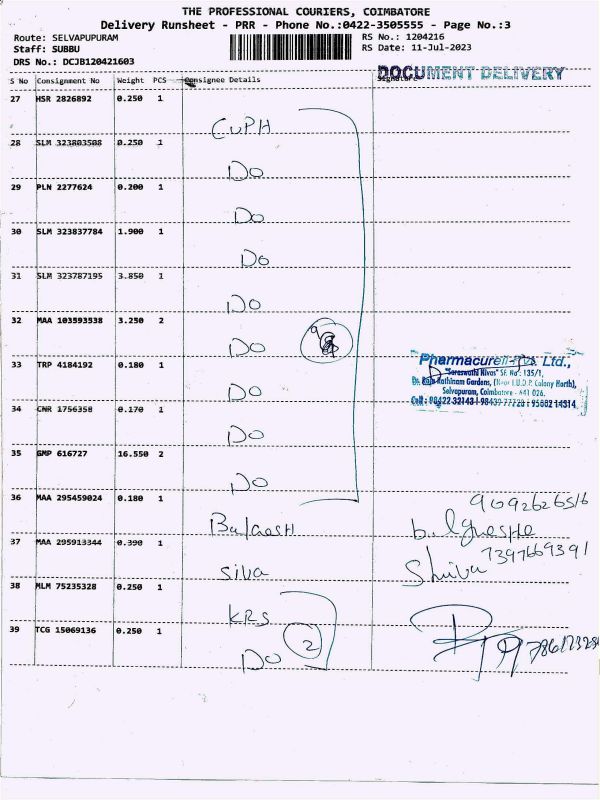 THE PROFESSIONAL COURIERS, COIMBATORE
Delivery Runsheet - PRR - Phone No.:0422-3505555 - Page No.:3
Route: SELVAPUPURAM
RS No.: 1204216
Staff: SUBBU
RS Date: 11-Jul-2023
DRS No.: DCJB120421603
DOCUMENT DELIVERY
S No Consignment No Weight PCS Consignee Details Signature
27 HSR 2826892 0.250 1
CUPH
28 SLM 323803508 0.250 1
Do
29 PLN 2277624 0.200 1
Do
30 SLM 323837784 1.900 1
Do
31 SLM 323787195 3.850 1
Do
32 MAA 103593538 3.250 2
Do
33 TRP 4184192 0.180 1
Do
34 CNR 1756358 0.170 1
Do
35 GMP 616727 16.550 2
Do
Pharmacureil Pvt. Ltd.,
"Saraswathi Nivas" SF. No: 135/1,
Rathinam Gardens, (Near I.U.D.P. Colony North),
Selvapuram, Coimbatore - 641 026.
Cell : 98422 32143 | 98430 77728 | 95002 14314
36 MAA 295459024 0.180 1
9092626516
37 MAA 295913344 0.390 1
Siva
Shiva 7397669391
38 MLM 75235328 0.250 1
KRS
39 TCG 15069136 0.250 1
Do 2